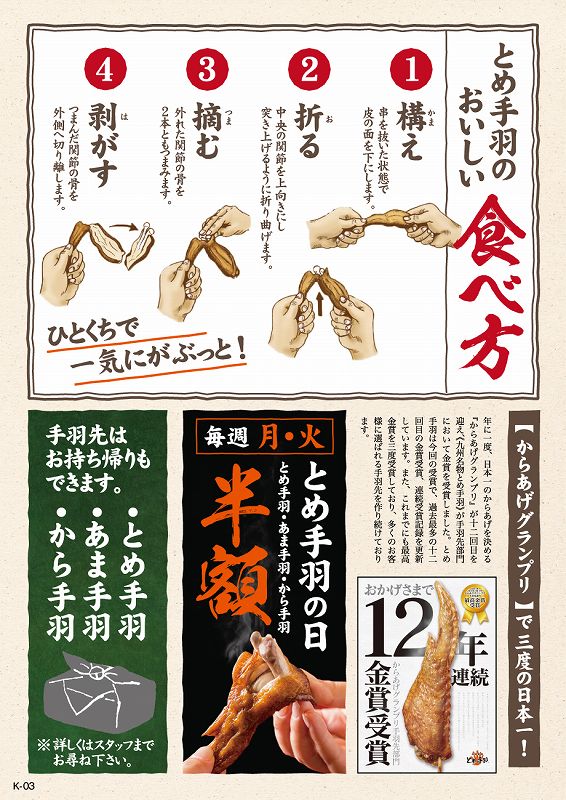 とめ手羽の
おいしい
食べ方
1
構え
かま
串を抜いた状態で
皮の面を下にします。
2
折る
お
中央の関節を上向きにし
突き上げるように折り曲げます。
3
摘む
つま
外れた関節の骨を
2本ともつまみます。
4
剥がす
は
つまんだ関節の骨を
外側へ切り離します。
ひとくちで
一気にがぶっと！
【からあげグランプリ】で三度の日本一！
年に一度、日本一のからあげを決める
『からあげグランプリ』が十二回目を
迎え《九州名物とめ手羽》が手羽先部門
において金賞を受賞しました。とめ
手羽は今回の受賞で、過去最多の十二
回目の金賞受賞、連続受賞記録を更新
しています。また、これまでにも最高
金賞を三度受賞しており、多くのお客
様に選ばれる手羽先を作り続けており
ます。
おかげさまで
12年
連続
からあげグランプリ手羽先部門
金賞受賞
最高金賞
受賞
とめ手羽
毎週 月・火
とめ手羽の日
とめ手羽・あま手羽・から手羽
半額
手羽先は
お持ち帰りも
できます。
・とめ手羽
・あま手羽
・から手羽
※詳しくはスタッフまで
お尋ね下さい。
K-03